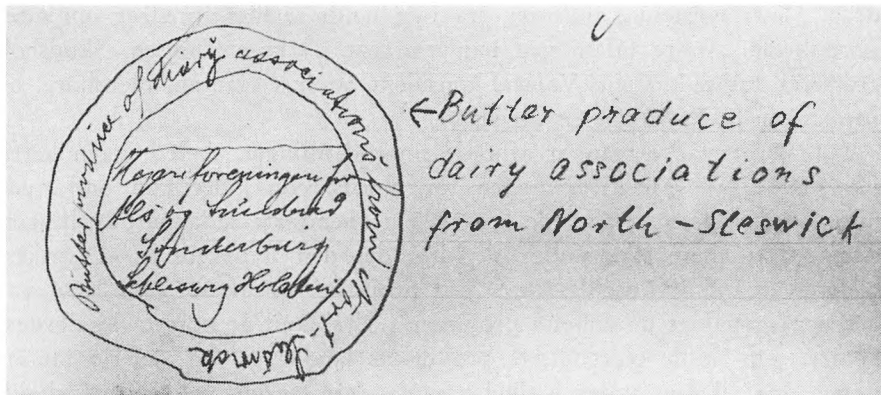 Butter produce of dairy associations from Nort Sleswick
Mejeriforeningen for
Als og Sundeved
Sonderburg
Schleswig Holstein
← Butter produce of
dairy associations
from North - Sleswick